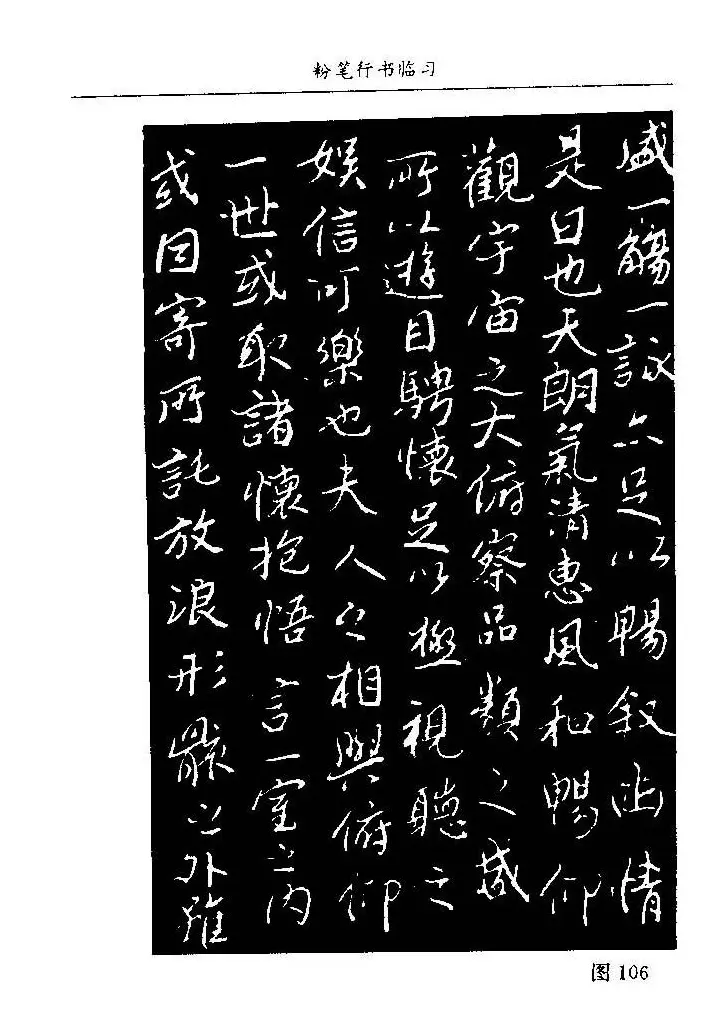 粉笔行书临习
盛一觴一詠亦足以暢叙幽情
是日也天朗氣清惠風和暢仰
觀宇宙之大俯察品類之盛
所以遊目騁懷足以極視聽之
娛信可樂也夫人之相與俯仰
一世或取諸懷抱悟言一室之內
或因寄所託放浪形骸之外雖
图 106